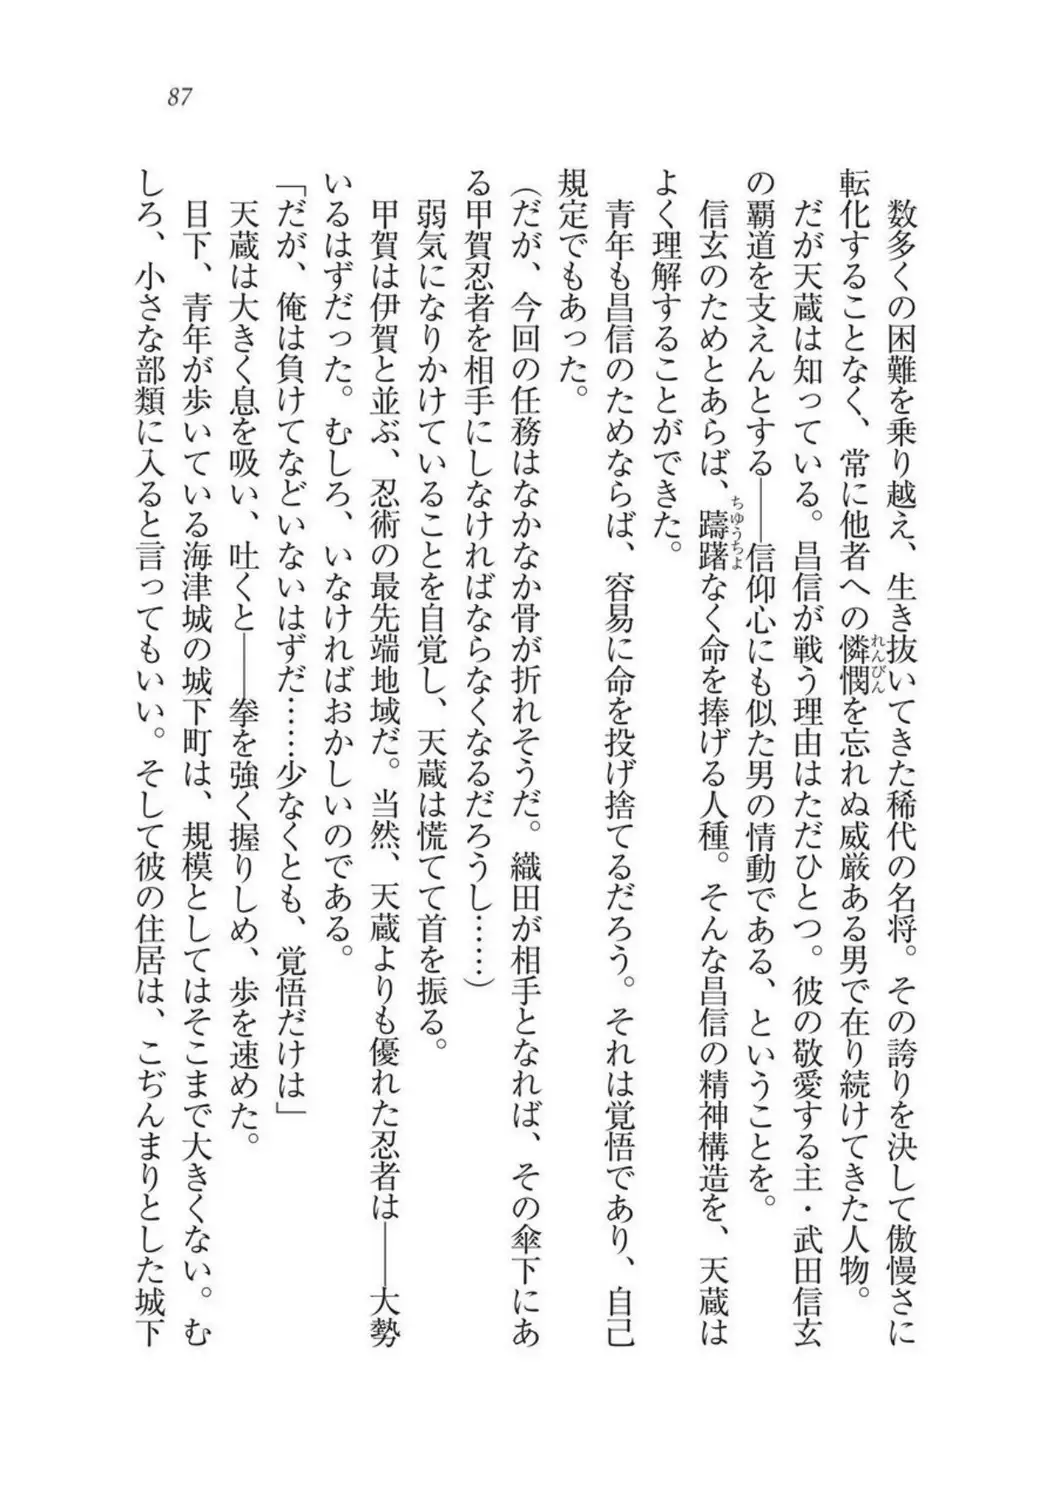 87
数多くの困難を乗り越え、生き抜いてきた稀代の名将。その誇りを決して傲慢さに
転化することなく、常に他者への憐憫を忘れぬ威厳ある男で在り続けてきた人物。
れんびん
だが天蔵は知っている。昌信が戦う理由はただひとつ。彼の敬愛する主・武田信玄
の覇道を支えんとする――信仰心にも似た男の情動である、ということを。
信玄のためとあらば、躊躇なく命を捧げる人種。そんな昌信の精神構造を、天蔵は
ちゆうちよ
よく理解することができた。
青年も昌信のためならば、容易に命を投げ捨てるだろう。それは覚悟であり、自己
規定でもあった。
(だが、今回の任務はなかなか骨が折れそうだ。織田が相手となれば、その傘下にあ
る甲賀忍者を相手にしなければならなくなるだろうし……)
弱気になりかけていることを自覚し、天蔵は慌てて首を振る。
甲賀は伊賀と並ぶ、忍術の最先端地域だ。当然、天蔵よりも優れた忍者は――大勢
いるはずだった。むしろ、いなければおかしいのである。
「だが、俺は負けてなどいないはずだ……少なくとも、覚悟だけは」
天蔵は大きく息を吸い、吐くと――拳を強く握りしめ、歩を速めた。
目下、青年が歩いている海津城の城下町は、規模としてはそこまで大きくない。む
しろ、小さな部類に入ると言ってもいい。そして彼の住居は、こぢんまりとした城下